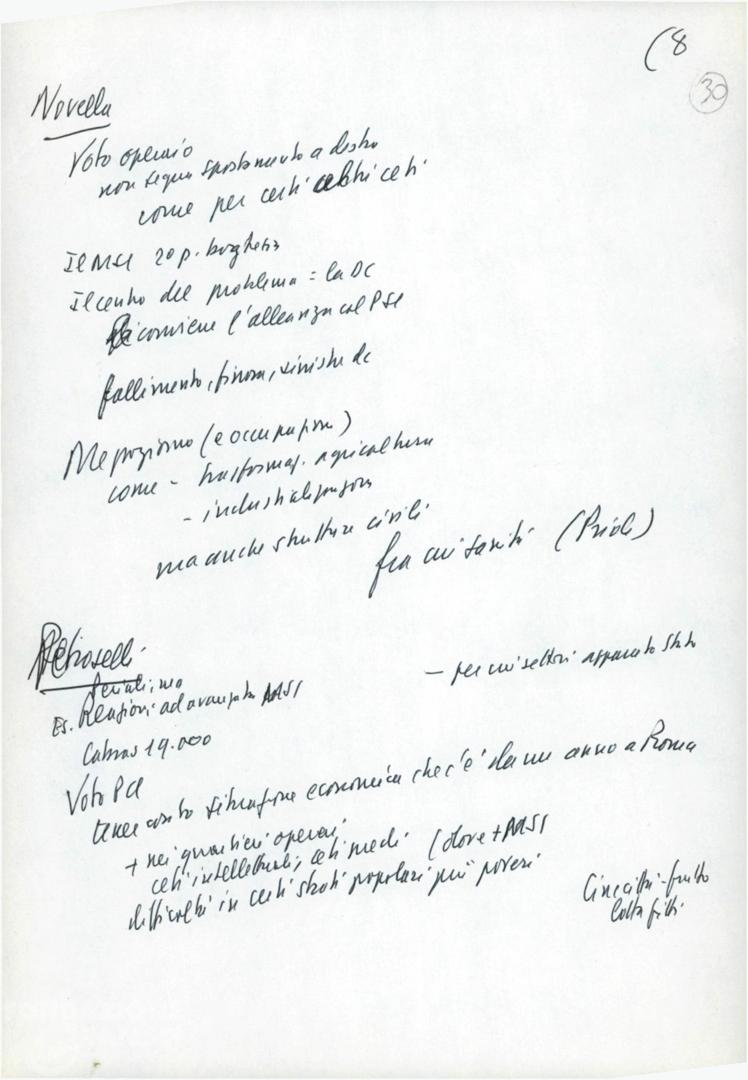 (8
30
Novella
Voto operaio
non segue spostamento a destra
come per certi altri ceti
Il MSI 20 p. borghesia
Il centro del problema = la DC
conviene l'alleanza col PSI
fallimento, finora, sinistre dc
Mezzogiorno (e occupazione)
come - trasformaz. agricoltura
- industrializzazione
ma anche strutture civili
fra cui sanità (Priolo)
Petroselli
- per cui settori apparato Stato
Es. Reazioni ad avanzata MSI
Cabras 19.000
Voto PCI
tener conto situazione economica che c'è da un anno a Roma
+ nei quartieri operai
ceti intellettuali, ceti medi (dove + MSI
difficoltà in certi strati popolari più poveri
Cinecittà - frutto
lotta fitti